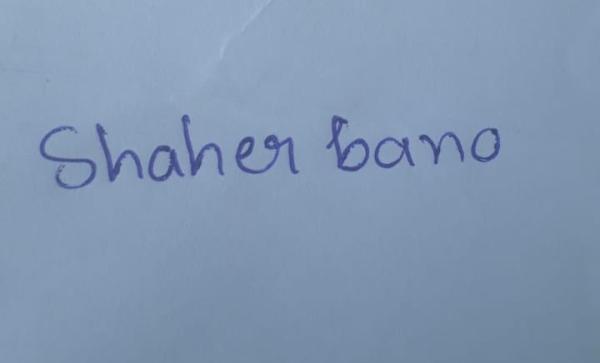 Shaher bano